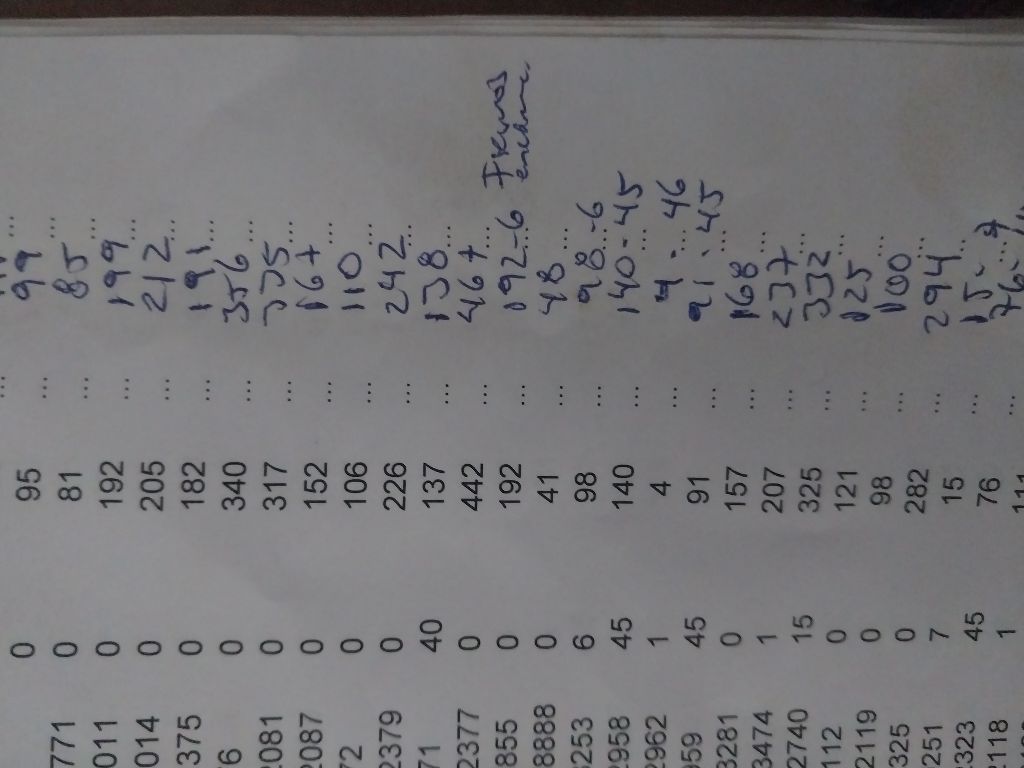 0 95 ... 99 ...
771 0 81 ... 85 ...
011 0 192 ... 199 ...
014 0 205 ... 212 ...
375 0 182 ... 191 ...
6 0 340 ... 356 ...
2081 0 317 ... 335 ...
2087 0 152 ... 167 ...
72 0 106 ... 110 ...
2379 0 226 ... 242 ...
71 40 137 ... 138 ...
2377 0 442 ... 467 ...
855 0 192 ... 192-6 ...
8888 0 41 ... 48 ...
6253 6 98 ... 98-6 ...
2958 45 140 ... 140-45 ...
2962 1 4 ... 4-46 ...
959 45 91 ... 91-45 ...
3281 0 157 ... 168 ...
3474 1 207 ... 237 ...
2740 15 325 ... 332 ...
112 0 121 ... 125 ...
2119 0 98 ... 100 ...
325 0 282 ... 294 ...
251 7 15 ... 15-7 ...
2323 45 76 ... 76-
2118 1 111